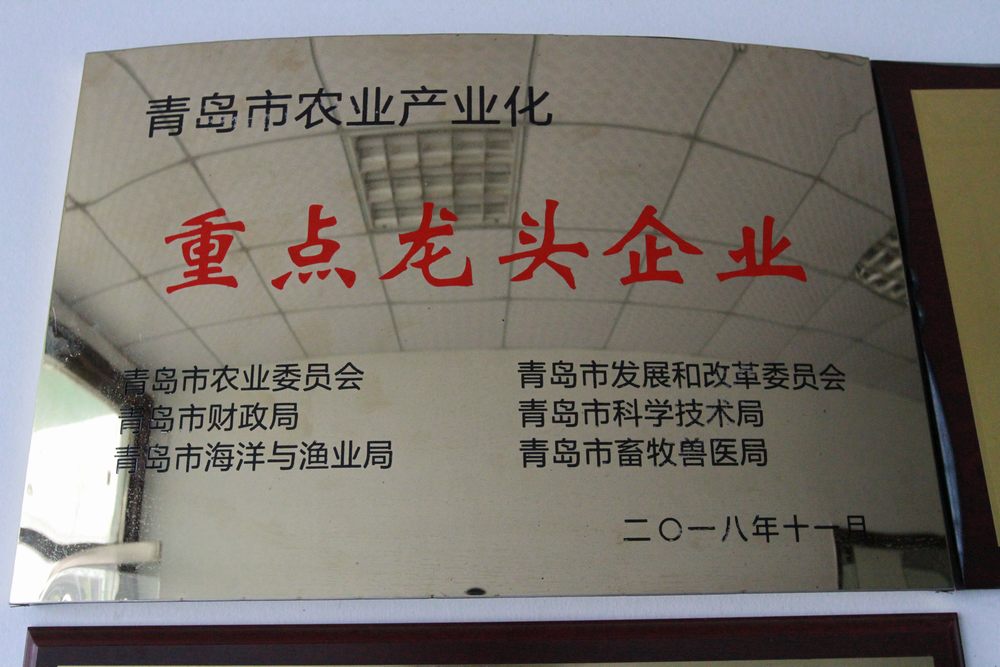 青岛市农业产业化
重点龙头企业
青岛市农业委员会 青岛市发展和改革委员会
青岛市财政局 青岛市科学技术局
青岛市海洋与渔业局 青岛市畜牧兽医局
二〇一八年十一月